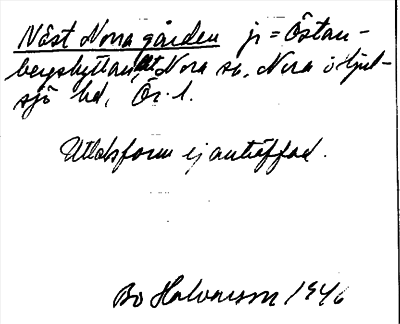 Näst Norra gården jr = Östan-
bergshyttan, Nora sn, Nora o Hjul-
sjö bd, Ör. l.
Uttalsform ej anträffad.
Bo Halvarson 1946